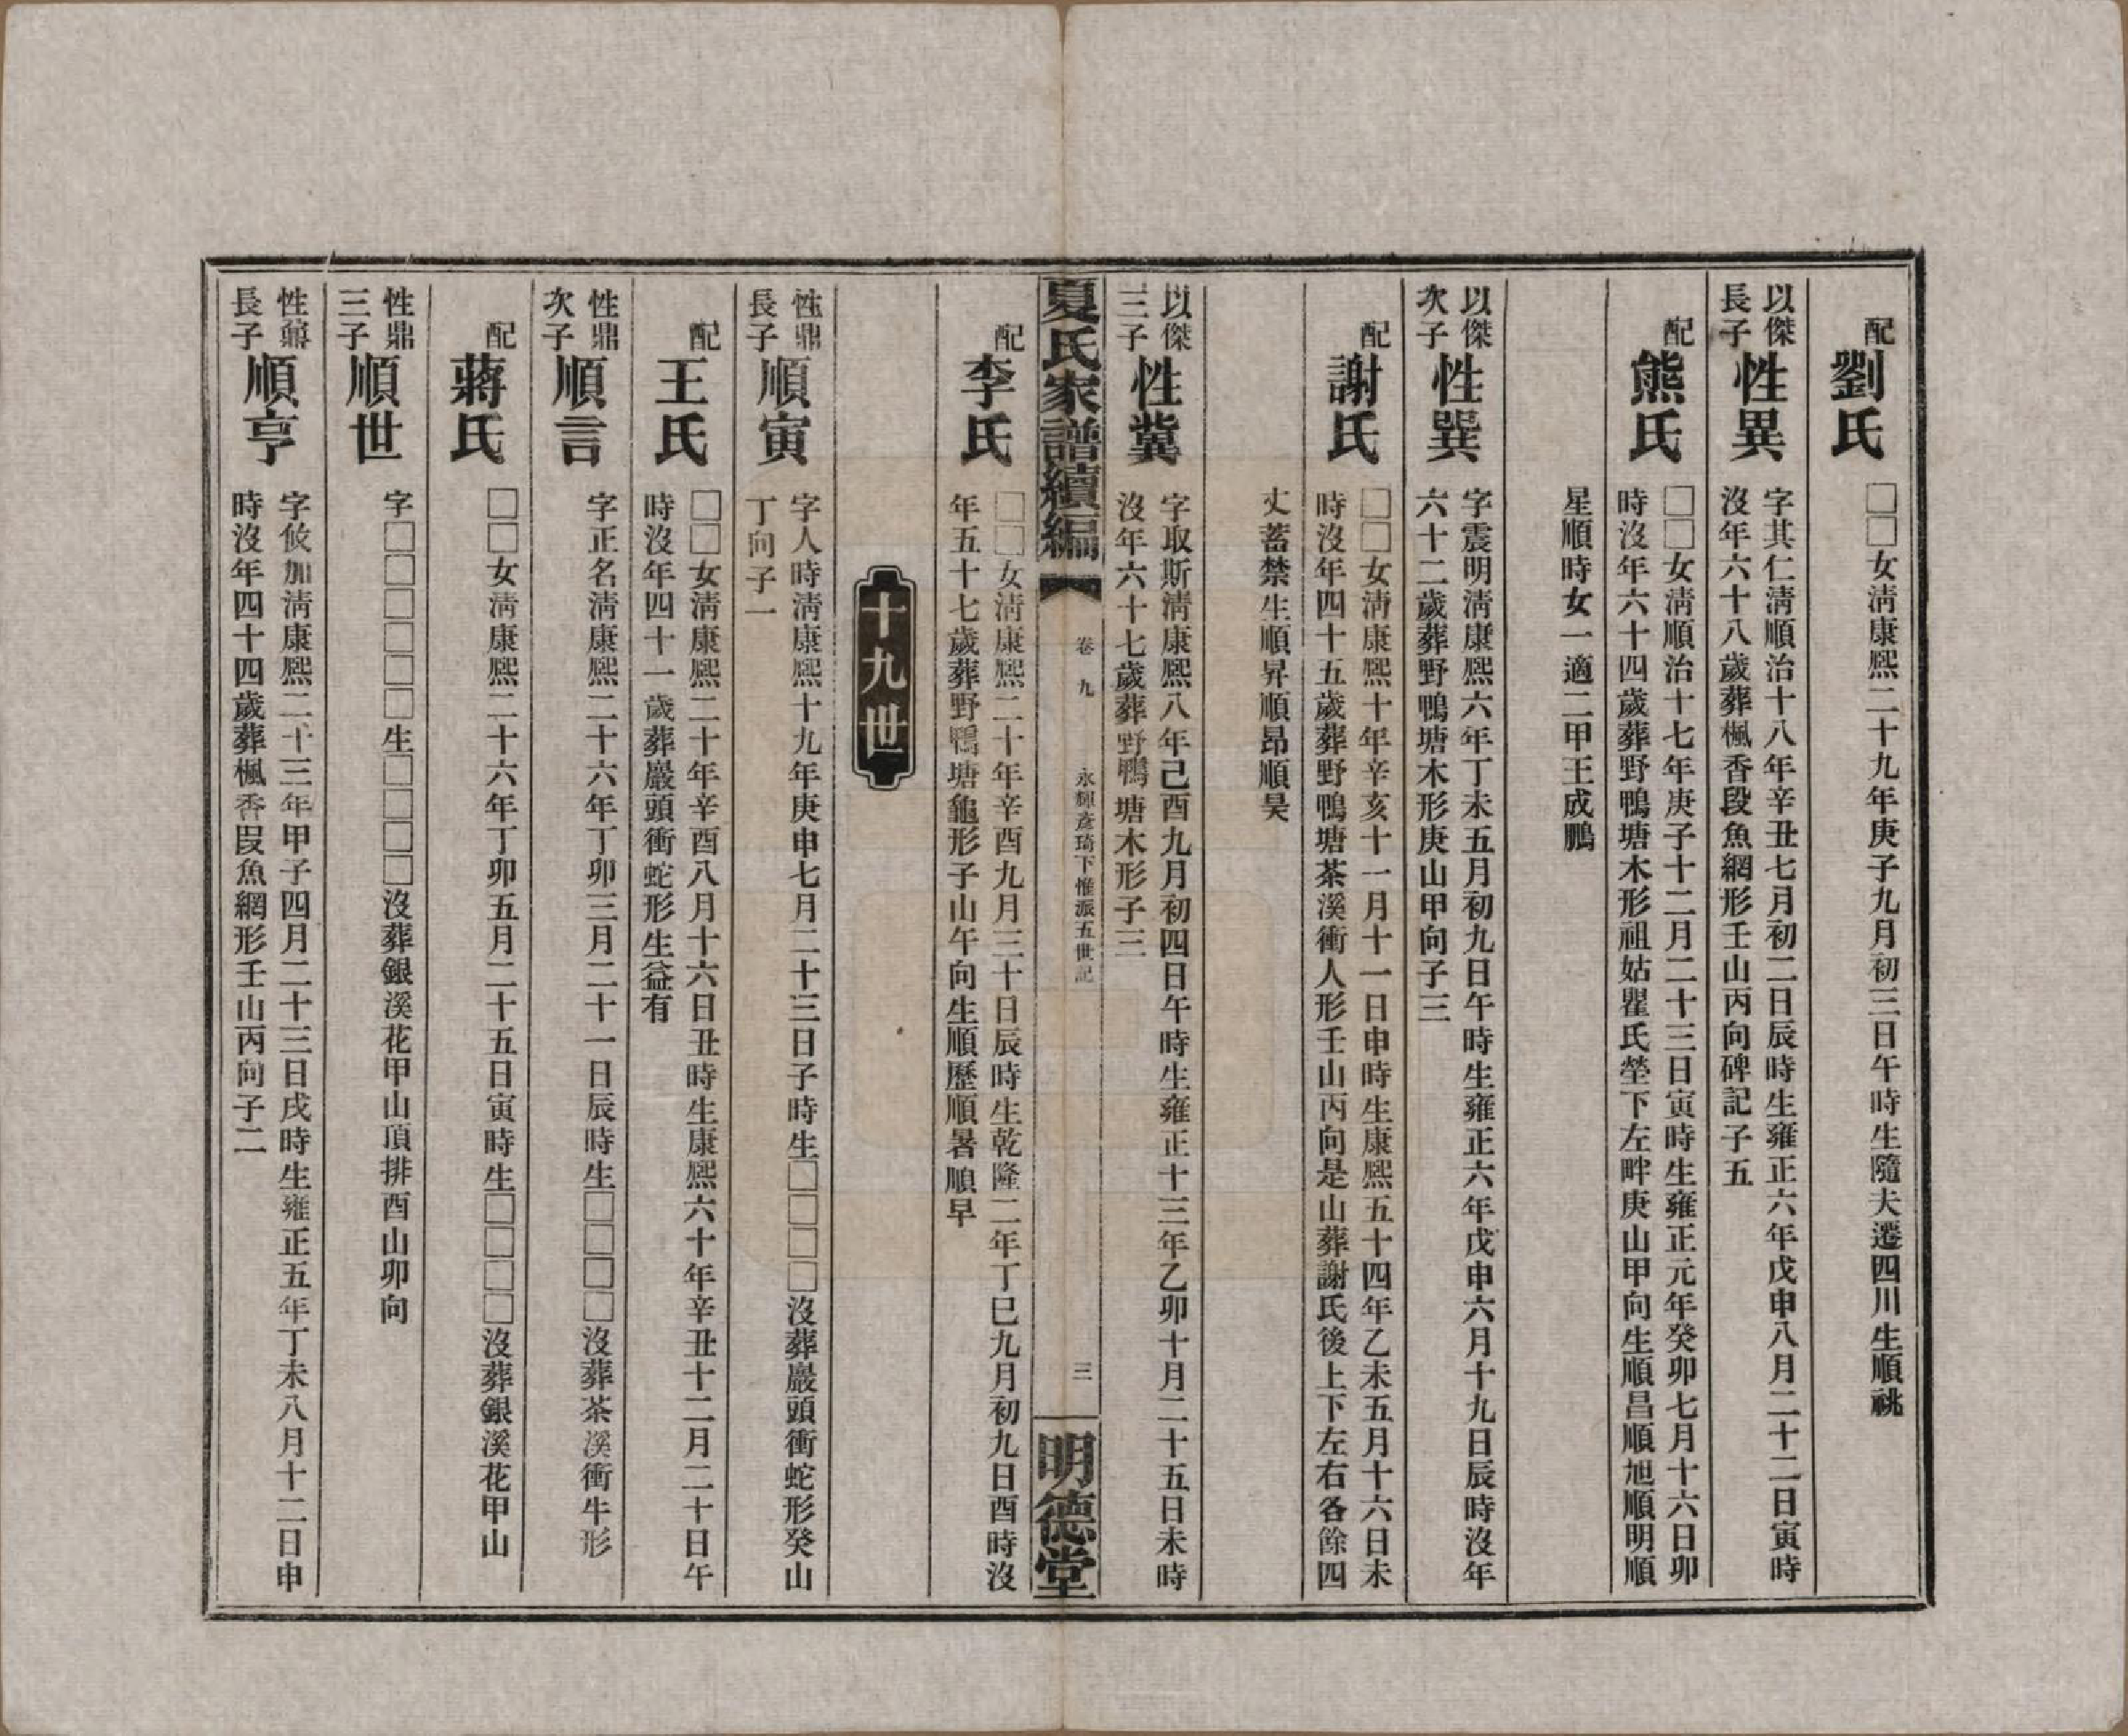 配
劉氏
□□女淸康熙二十九年庚子九月初三日午時生隨夫遷四川生順祧
以傑
長子
性異
字其仁淸順治十八年辛丑七月初二日辰時生雍正六年戊申八月二十二日寅時
沒年六十八歲葬楓香段魚網形壬山丙向碑記子五
配
熊氏
□□女淸順治十七年庚子十二月二十三日寅時生雍正元年癸卯七月十六日卯
時沒年六十四歲葬野鴨塘木形祖姑瞿氏塋下左畔庚山甲向生順昌順旭順明順
星順時女一適二甲王成鵬
以傑
次子
性巽
字震明淸康熙六年丁未五月初九日午時生雍正六年戊申六月十九日辰時沒年
六十二歲葬野鴨塘木形庚山甲向子三
配
謝氏
□□女淸康熙十年辛亥十一月十一日申時生康熙五十四年乙未五月十六日未
時沒年四十五歲葬野鴨塘茶溪衝人形壬山丙向是山葬謝氏後上下左右各餘四
丈蓄禁生順昇順昂順昊
以傑
三子
性冀
字取斯淸康熙八年己酉九月初四日午時生雍正十三年乙卯十月二十五日未時
沒年六十七歲葬野鴨塘木形子三
夏氏家譜續編
卷九
永輝彥琦下惟派五世記
三
明德堂
配
李氏
□□女淸康熙二十年辛酉九月三十日辰時生乾隆二年丁巳九月初九日酉時沒
年五十七歲葬野鴨塘龜形子山午向生順歷順暑順早
十九世
性鼎
長子
順寅
字人時淸康熙十九年庚申七月二十三日子時生□□□□沒葬巖頭衝蛇形癸山
丁向子一
配
王氏
□□女淸康熙二十年辛酉八月十六日丑時生康熙六十年辛丑十二月二十日午
時沒年四十一歲葬巖頭衝蛇形生益有
性鼎
次子
順言
字正名淸康熙二十六年丁卯三月二十一日辰時生□□□□沒葬茶溪衝牛形
配
蔣氏
□□女淸康熙二十六年丁卯五月二十五日寅時生□□□□沒葬銀溪花甲山
性鼎
三子
順世
字□□□□□□生□□□□沒葬銀溪花甲山頂排酉山卯向
性鼐
長子
順亨
字攸加淸康熙二十三年甲子四月二十三日戌時生雍正五年丁未八月十二日申
時沒年四十四歲葬楓香段魚網形壬山丙向子二